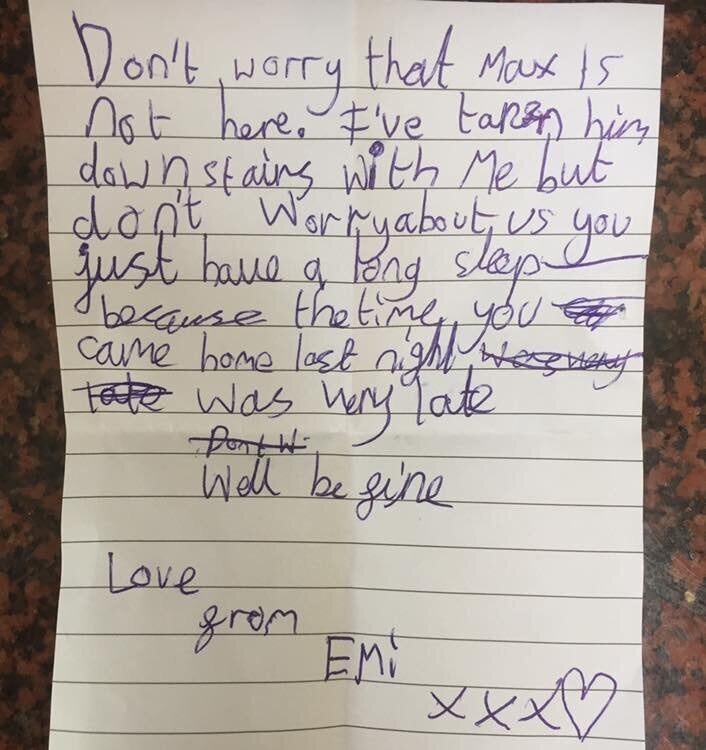 Don't worry that Max is
not here. I've taken him
downstairs with Me but
don't worry about us you
just have a long sleep
because the time you
came home last night was very
late was very late
Dont W
Well be fine
Love
from
EMi
xxx♡